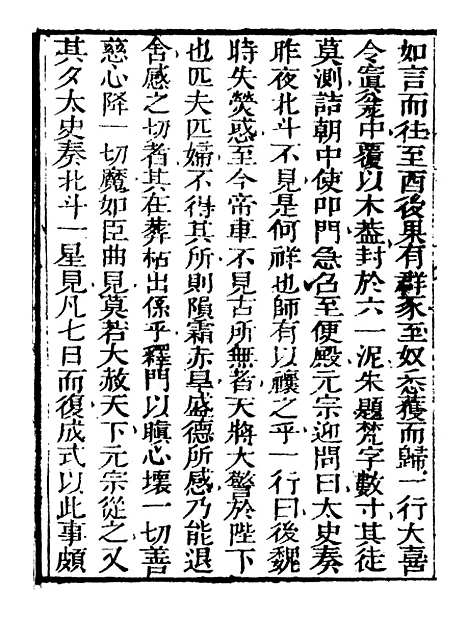 如言而往至酉後果有群豕至奴悉獲而歸一行大喜
令寘瓮中覆以木蓋封於六一泥朱題梵字數寸其徒
莫測詰朝中使叩門急召至便殿元宗迎問曰太史奏
昨夜北斗不見是何祥也師有以禳之乎一行曰後魏
時失熒惑至今帝車不見古所無者天將大警於陛下
也匹夫匹婦不得其所則隕霜赤旱盛德所感乃能退
舍感之切者其在葬枯出係乎釋門以瞋心壞一切善
慈心降一切魔如臣曲見莫若大赦天下元宗從之又
其夕太史奏北斗一星見凡七日而復成式以此事頗